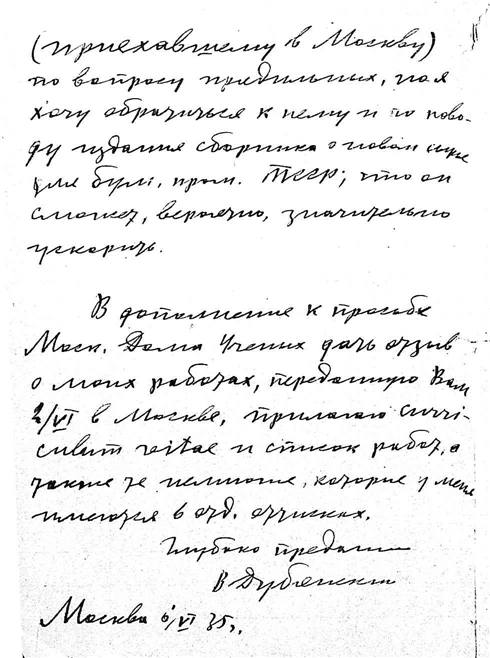 (приехавшему в Москву)
по вопросу прядильных, но я
хочу обратиться к нему и по пово-
ду издания сборника о новом сырье
для бум. пром. ТССР; что он
сможет, вероятно, значительно
ускорить.
В дополнение к просьбе
Моск. Дома Ученых дать отзыв
о моих работах, переданную Вам
2/VI в Москве, прилагаю curri-
culum vitae и список работ, а
также те немногие, которые у меня
имеются в отд. оттисках.
Глубоко преданный
В Дубянский
Москва 6/VI 35 г.